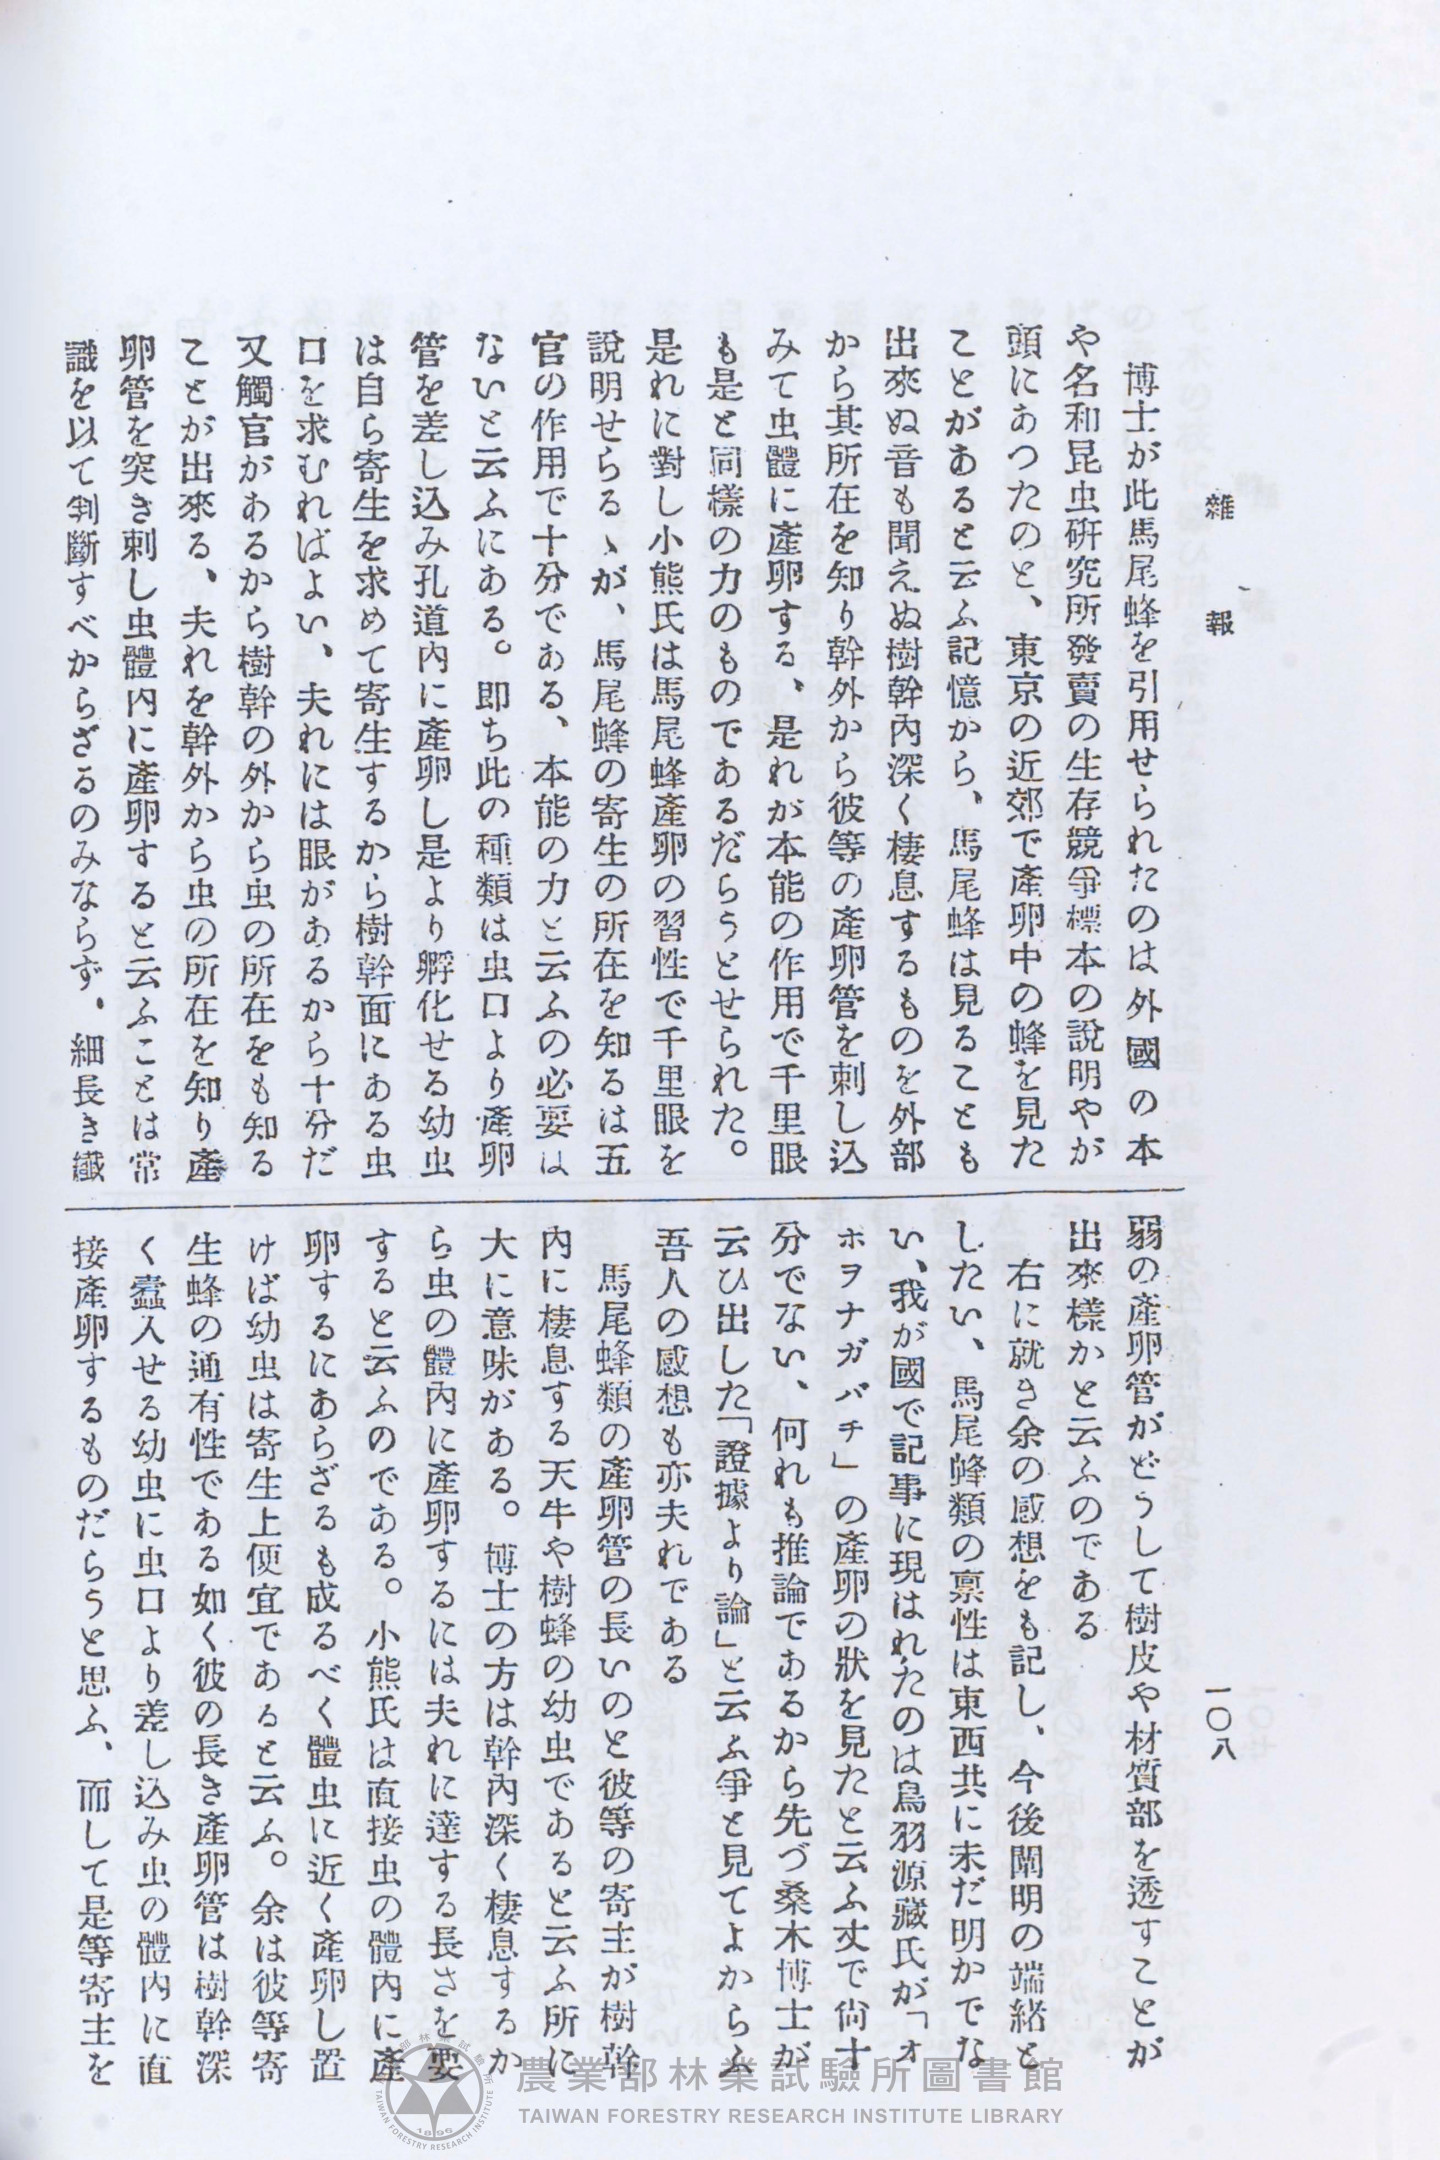 雜報
一〇八
博士が此馬尾蜂を引用せられたのは外國の本
や名和昆虫研究所發賣の生存競爭標本の說明やが
頭にあつたのと、東京の近郊で產卵中の蜂を見た
ことがあると云ふ記憶から、馬尾蜂は見ることも
出來ぬ音も聞えぬ樹幹內深く棲息するものを外部
から其所在を知り幹外から彼等の產卵管を刺し込
みて虫體に產卵する、是れが本能の作用で千里眼
も是と同樣の力のものであるだらうとせられた。
是れに對し小熊氏は馬尾蜂產卵の習性で千里眼を
說明せらるゝが、馬尾蜂の寄生の所在を知るは五
官の作用で十分である、本能の力と云ふの必要は
ないと云ふにある。即ち此の種類は虫口より產卵
管を差し込み孔道內に產卵し是より孵化せる幼虫
は自ら寄生を求めて寄生するから樹幹面にある虫
口を求むればよい、夫れには眼があるから十分だ
又觸官があるから樹幹の外から虫の所在をも知る
ことが出來る、夫れを幹外から虫の所在を知り產
卵管を突き刺し虫體內に產卵すると云ふことは常
識を以て判斷すべからざるのみならず、細長き纖
弱の產卵管がどうして樹皮や材質部を透すことが
出來樣かと云ふのである
右に就き余の感想をも記し、今後闡明の端緒と
したい、馬尾蜂類の稟性は東西共に未だ明かでな
い、我が國で記事に現はれたのは鳥羽源藏氏が「オ
ホヲナガバチ」の產卵の狀を見たと云ふ丈で尙十
分でない、何れも推論であるから先づ桑木博士が
云ひ出した「證據より論」と云ふ爭と見てよからふ
吾人の感想も亦夫れである
馬尾蜂類の產卵管の長いのと彼等の寄主が樹幹
內に棲息する天牛や樹蜂の幼虫であると云ふ所に
大に意味がある。博士の方は幹內深く棲息するか
ら虫の體內に產卵するには夫れに達する長さを要
すると云ふのである。小熊氏は直接虫の體內に產
卵するにあらざるも成るべく體虫に近く產卵し置
けば幼虫は寄生上便宜であると云ふ。余は彼等寄
生蜂の通有性である如く彼の長き產卵管は樹幹深
く蠹入せる幼虫に虫口より差し込み虫の體內に直
接產卵するものだらうと思ふ、而して是等寄主を
農業部林業試驗所圖書館
TAIWAN FORESTRY RESEARCH INSTITUTE LIBRARY
農業部林業試驗所
TAIWAN FORESTRY RESEARCH INSTITUTE
1896